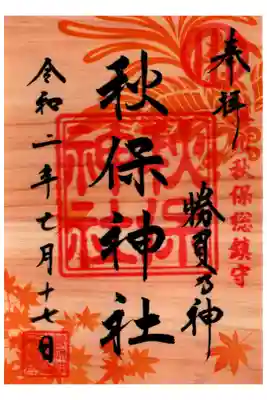 奉拝
秋保総鎮守
勝負乃神
秋保神社
秋保
神社
令和二年七月十七日